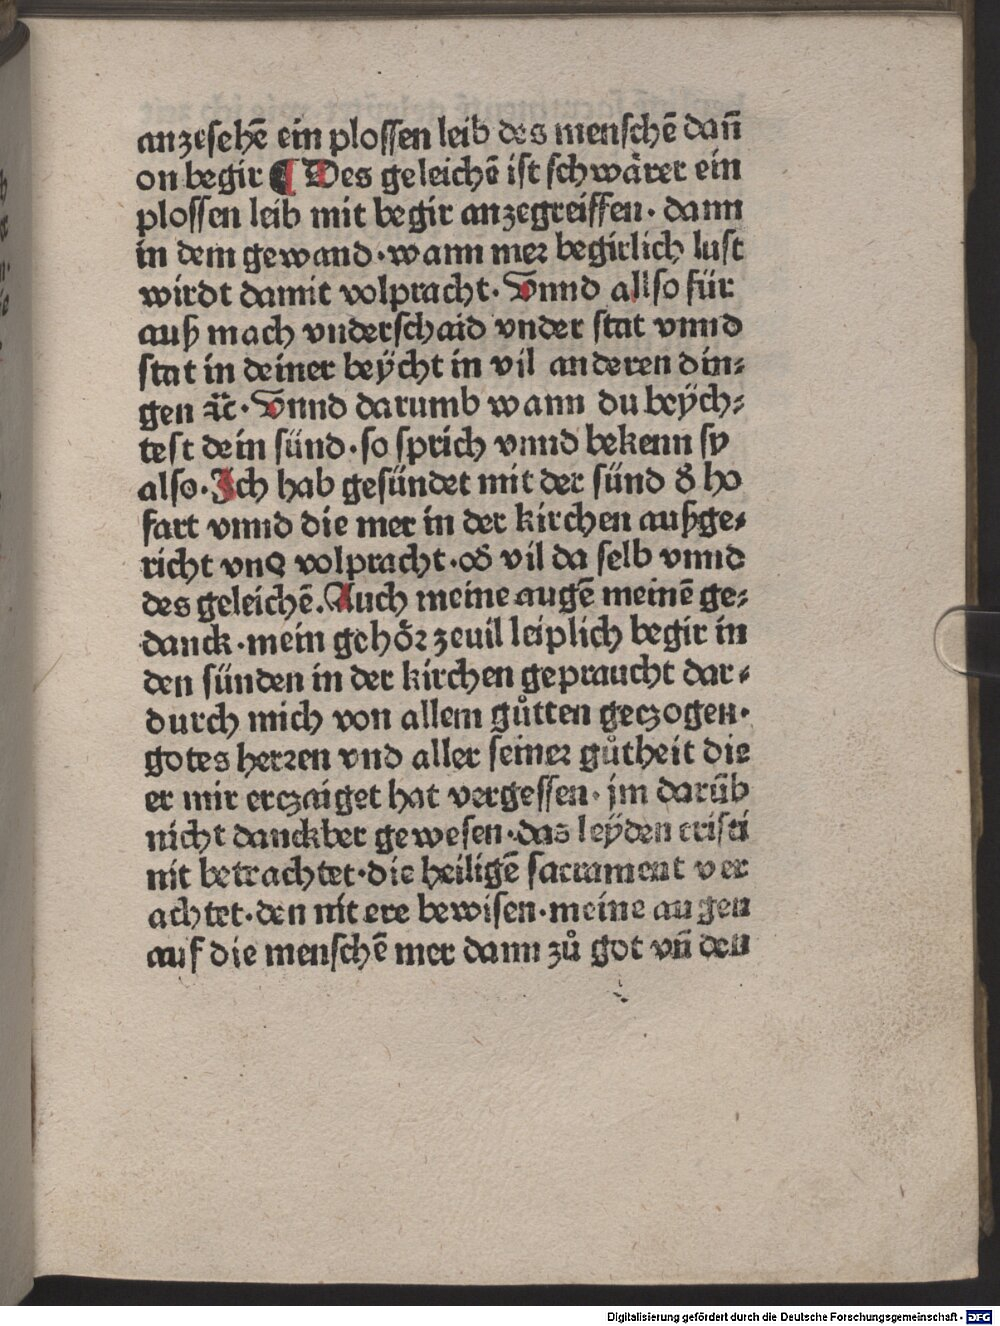 anzesehē ein plossen leib des menschē dañ
on begir ¶ Des geleichē ist schwärer ein
plossen leib mit begir anzegreiffen· dann
in dem gewand·wann mer begirlich lust
wirdt damit volpracht· Vnnd allso für
auß mach vnderschaid vnder stat vnnd
stat in deiner beÿcht in vil anderen din⸗
gen ⁊c̈· Vnnd darumb wann du beÿch⸗
test dein sünd·so sprich vnnd bekenn sy
also·Ich hab gesündet mit der sünd d̕ ho
fart vnnd die mer in der kirchen außge⸗
richt vnd volpracht·od̕ vil da selb vnnd
des geleichē.Auch meine augē meinē ge⸗
danck·mein gehöꝛ zeuil leiplich begir in
den sünden in der kirchen gepraucht dar⸗
durch mich von allem gůtten geczogen·
gotes herꝛen vnd aller seineꝛ gůtheit die
er mir erczaiget hat vergessen· jm darūb
nicht danckber gewesen·das leÿden cristi
nit betrachtet·die heiligē sacrament ver
achtet·den nit ere bewisen·meine augen
auf die menschē mer dann zů got vñ den
Digitalisierung gefördert durch die Deutsche Forschungsgemeinschaft - DFG